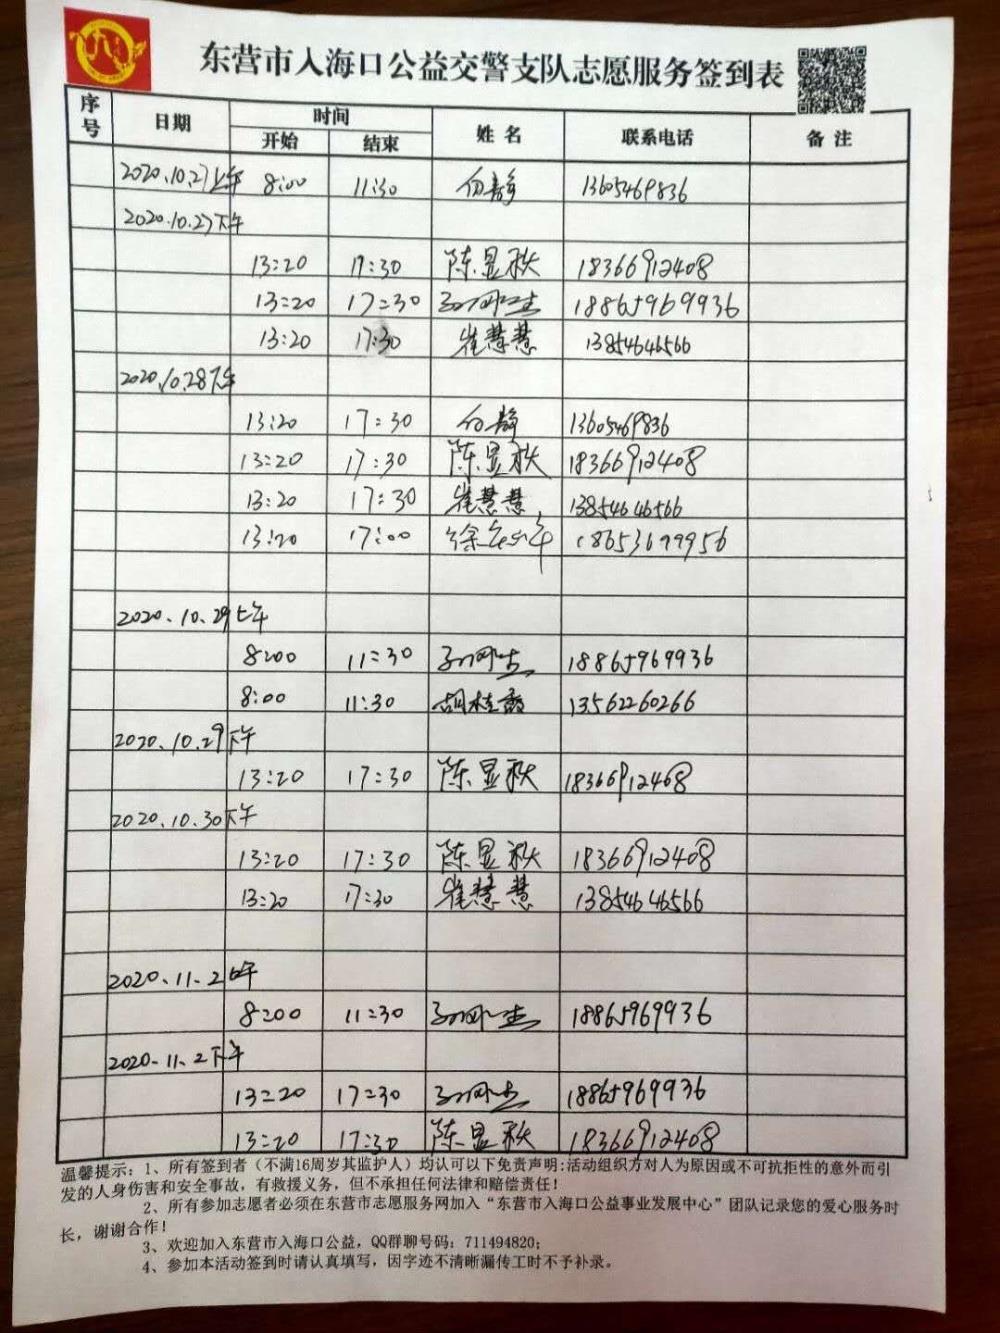 东营市入海口公益交警支队志愿服务签到表
序号 日期 时间 姓 名 联系电话 备 注
开始 结束
2020.10.27上午 8:00 11:30 向静 13605469836
2020.10.27下午
13:20 17:30 陈显秋 18366912408
13:20 17:30 18865969936
13:20 17:30 崔慧慧 13854646566
2020.10.28下午
13:20 17:30 向静 13605469836
13:20 17:30 陈显秋 18366912408
13:20 17:30 崔慧慧 13854646566
13:20 17:00 18653699956
2020.10.29上午
8:00 11:30 18865969936
8:00 11:30 胡桂 13562260266
2020.10.29下午
13:20 17:30 陈显秋 18366912408
2020.10.30下午
13:20 17:30 陈显秋 18366912408
13:20 17:30 崔慧慧 13854646566
2020.11.2上午
8:00 11:30 18865969936
2020.11.2下午
13:20 17:30 18865969936
13:20 17:30 陈显秋 18366912408
温馨提示:1、所有签到者(不满16周岁其监护人)均认可以下免责声明:活动组织方对人为原因或不可抗拒性的意外而引
发的人身伤害和安全事故,有救援义务,但不承担任何法律和赔偿责任!
2、所有参加志愿者必须在东营市志愿服务网加入“东营市入海口公益事业发展中心”团队记录您的爱心服务时
长,谢谢合作!
3、欢迎加入东营市入海口公益,QQ群聊号码:711494820;
4、参加本活动签到时请认真填写,因字迹不清晰漏传工时不予补录。